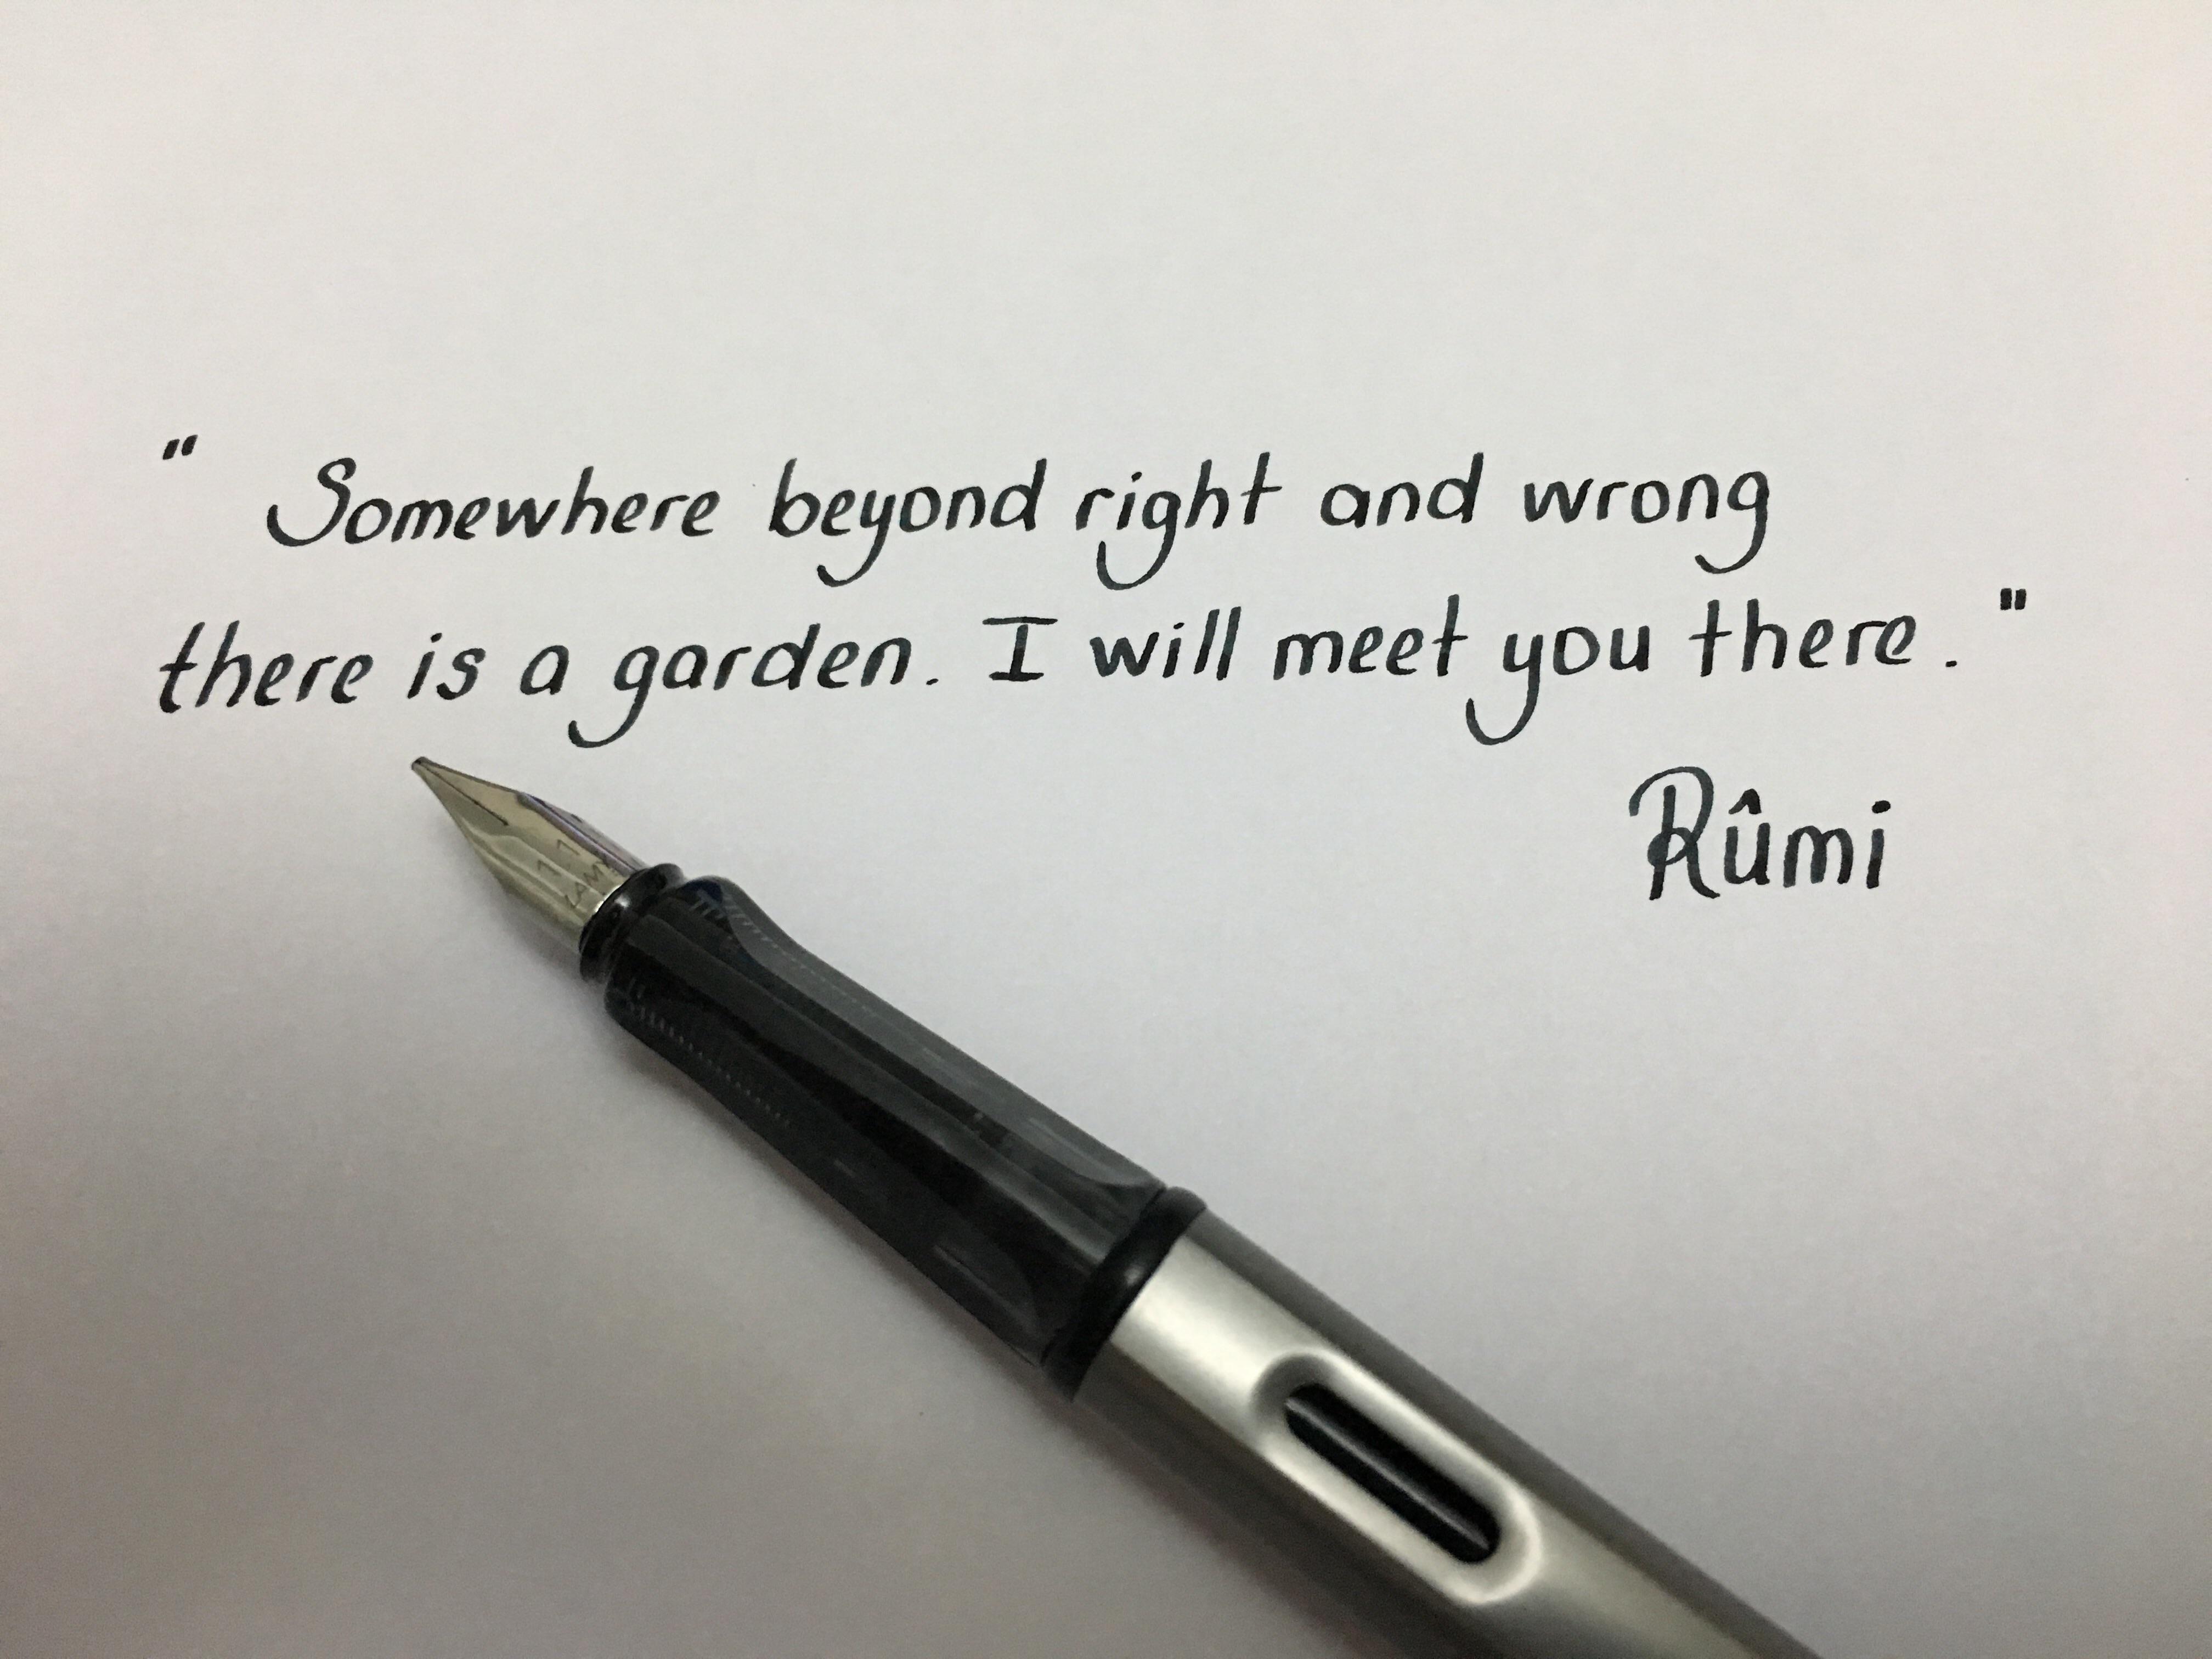 " Somewhere beyond right and wrong
there is a garden. I will meet you there. "
Rûmi
1.1
LAMY